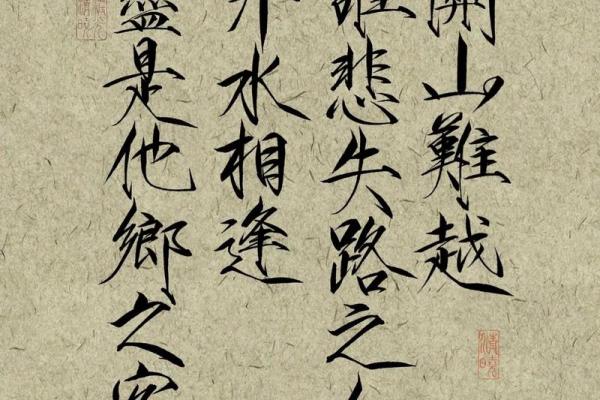 關山難越
誰悲失路之人
萍水相逢
盡是他鄉之客
清曉